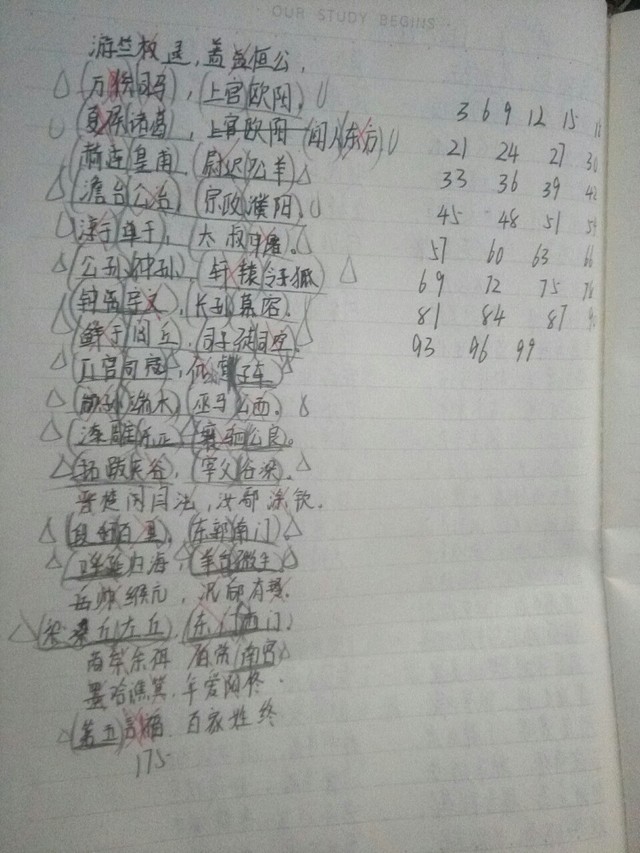 OUR STUDY BEGINS
游竺权逯，盖益恒公，
(万俟司马)，(上官欧阳)，
(夏侯诸葛，上官欧阳 (闻人东方)
赫连皇甫，(尉迟公羊)
(澹台公冶，(宗政濮阳，
淳于单于，太叔申屠。
公孙仲孙，轩辕令狐)
钟离宇文，长孙慕容，
鲜于闾丘，司徒司空，
亓官司寇，车
颛孙端木，巫马公西，
漆雕乐正，壤驷公良。
拓跋夹谷，宰父谷梁。
晋楚闫法，汝鄢涂钦，
段干百里，(东郭南门)
呼延归海，羊舌微生
岳帅缑亢，况郈有琴，
梁丘左丘，东门西门，
商牟佘佴 伯赏南宫
墨哈谯笪，年爱阳佟，
(第五言福 百家姓终
175
3 6 9 12 15
21 24 27 30
33 36 39 42
45 48 51 54
57 60 63 66
69 72 75 78
81 84 87
93 96 99